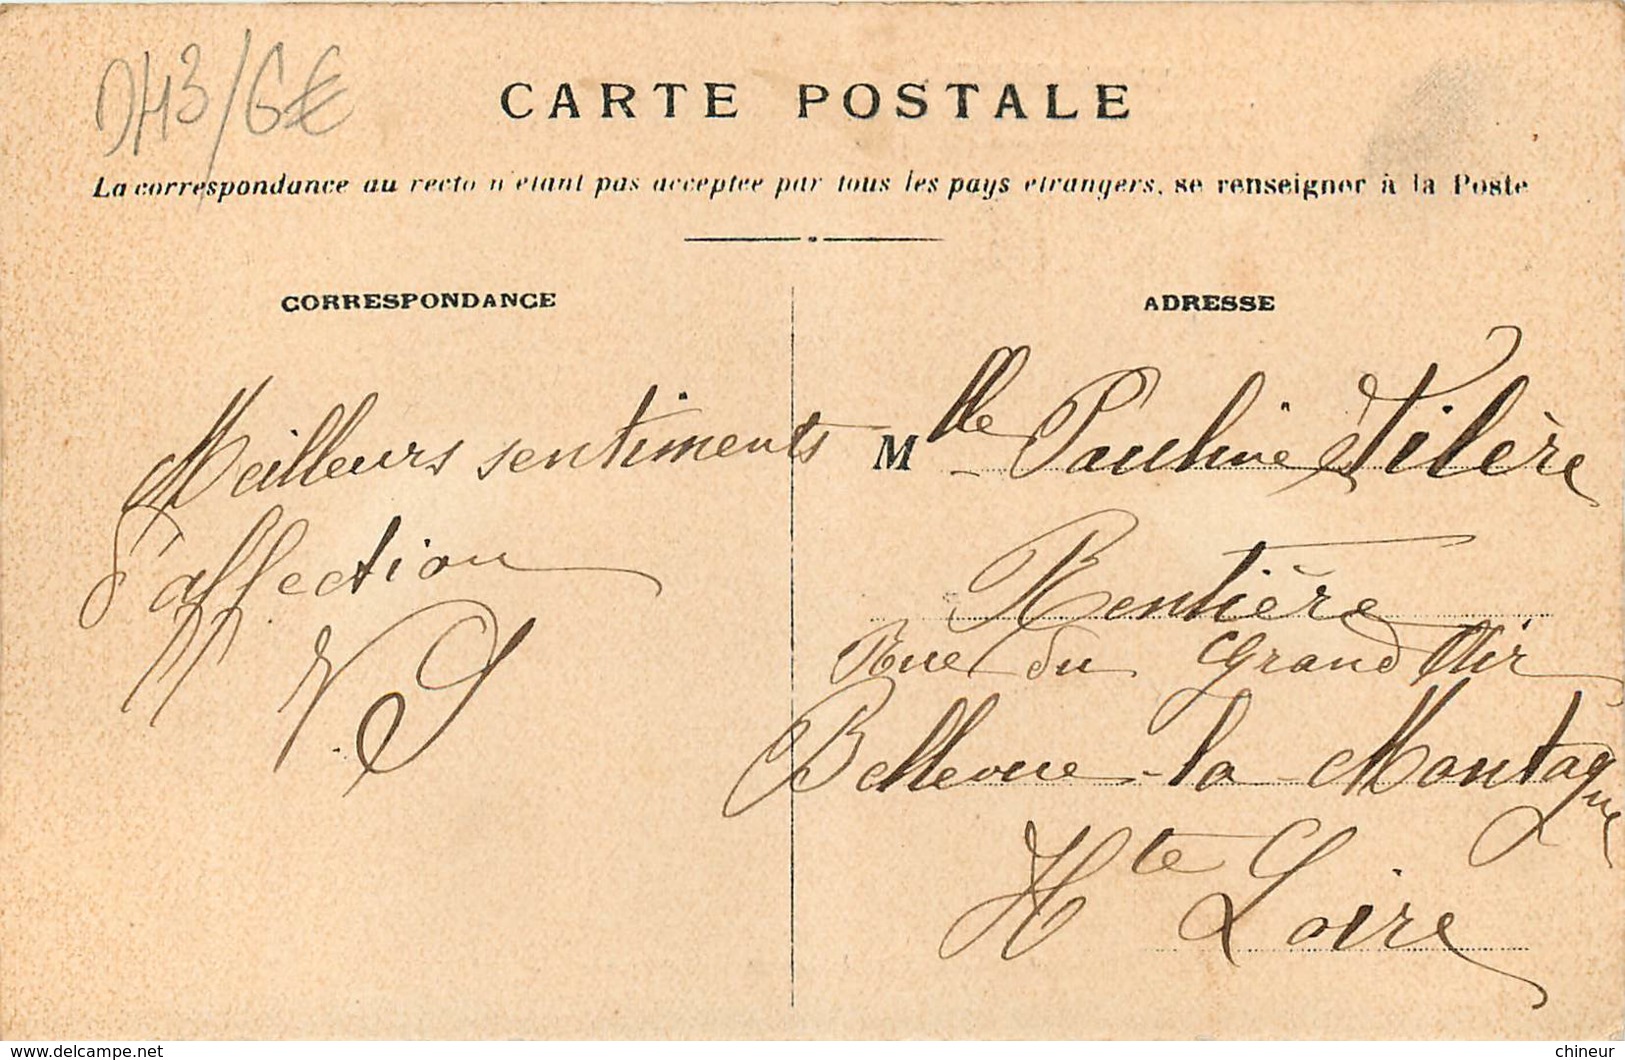 DH3/6€
CARTE POSTALE
La correspondance au recto n'étant pas acceptée par tous les pays étrangers, se renseigner à la Poste
CORRESPONDANCE
Meilleurs sentiments
d'affection
ADRESSE
Mlle Pauline
Rentière
Rue du Grand Air
Bellevue-la-Montagne
Hte Loire
© www.delcampe.net
chineur